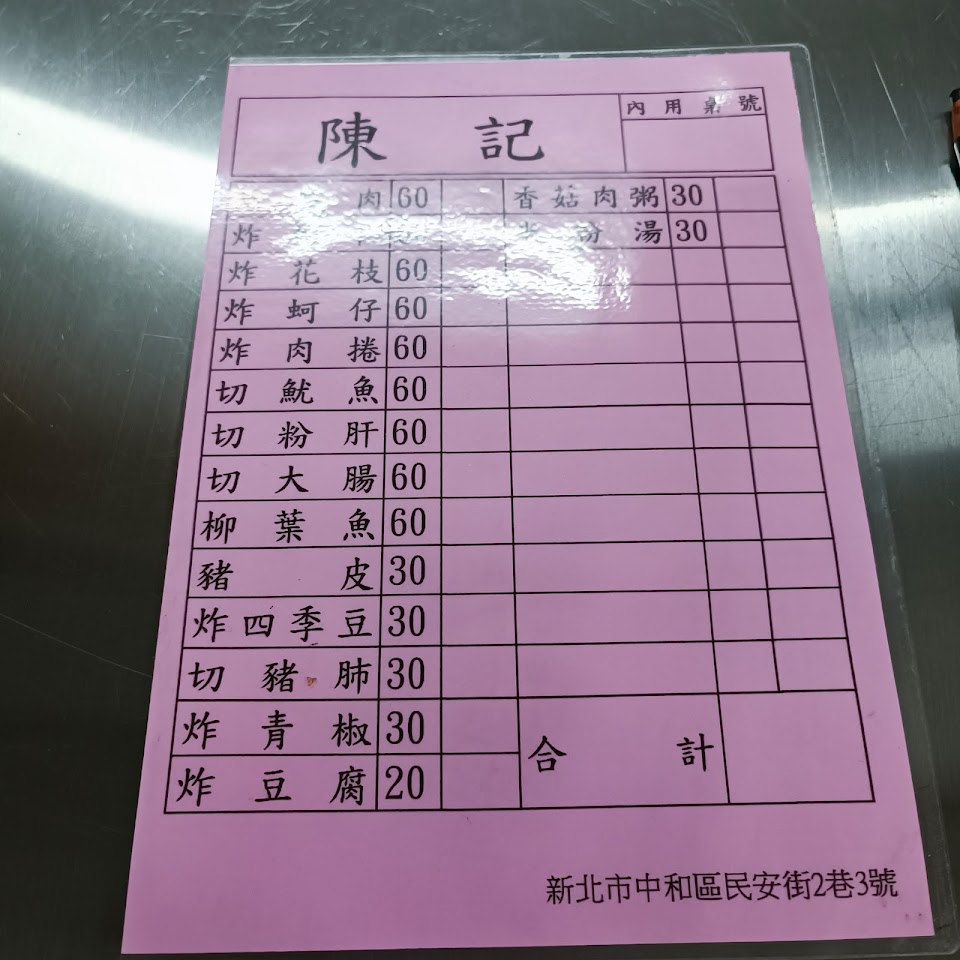 陳記
內用桌號
肉 60
香菇肉粥 30
炸
湯 30
炸花枝 60
炸蚵仔 60
炸肉捲 60
切魷魚 60
切粉肝 60
切大腸 60
柳葉魚 60
豬皮 30
炸四季豆 30
切豬肺 30
炸青椒 30
炸豆腐 20
合計
新北市中和區民安街2巷3號